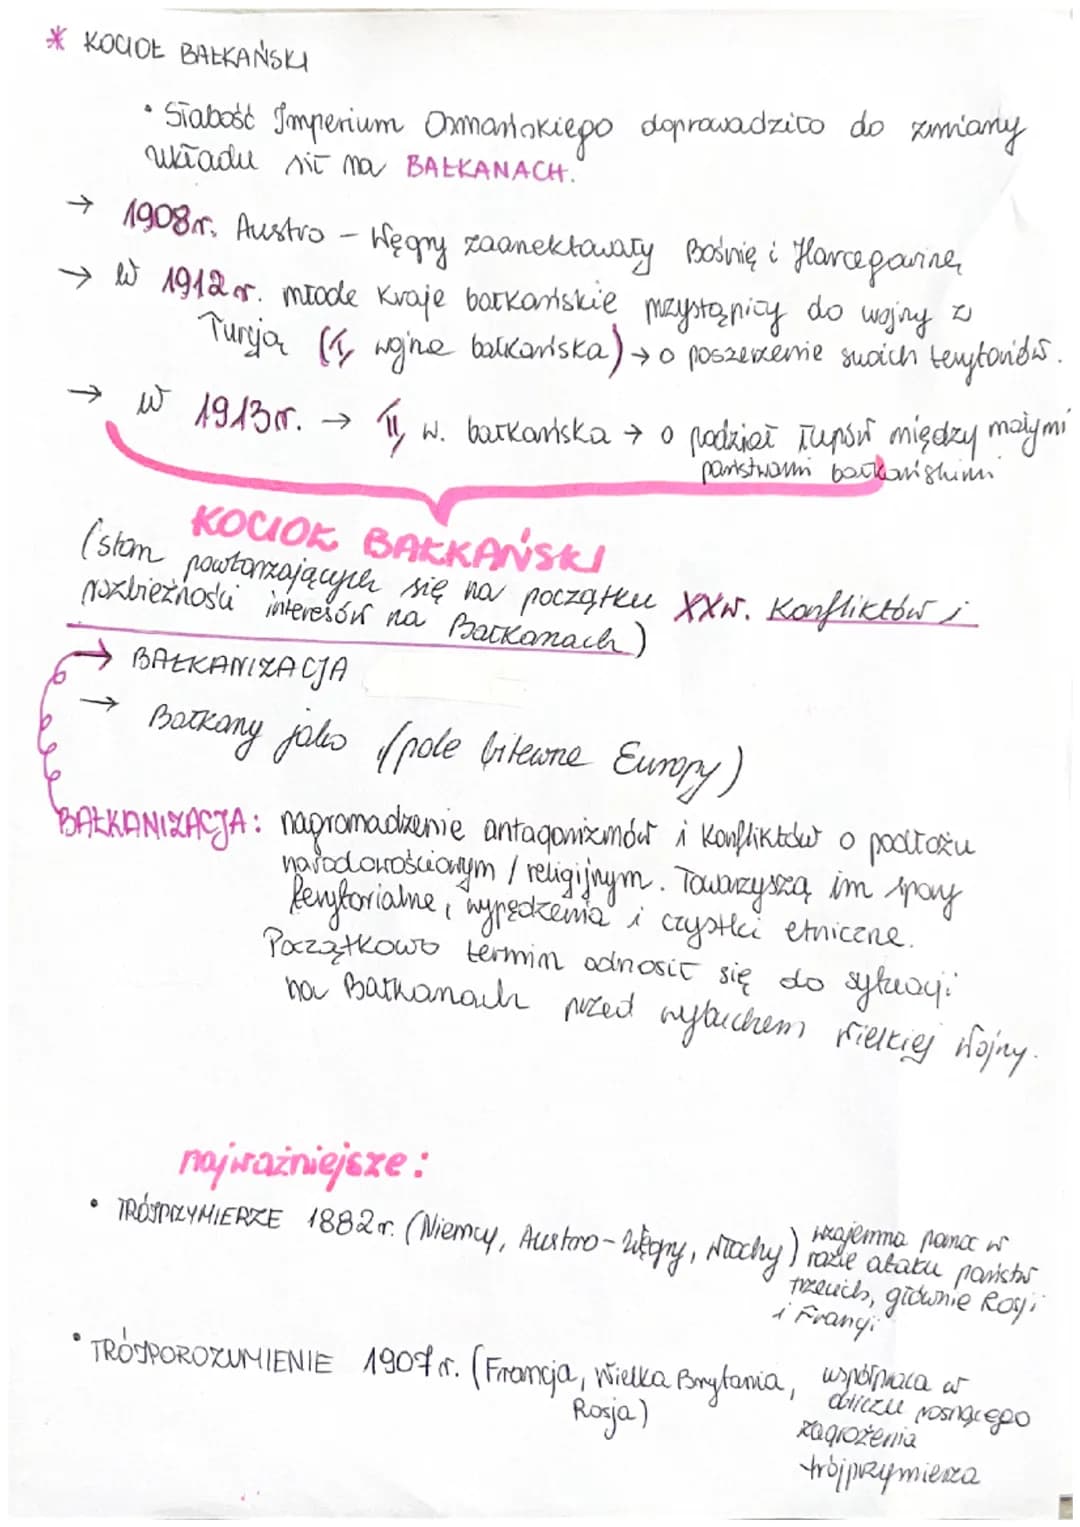 * KOCIOŁ BAŁKAŃSKI
• Słabość Imperium Osmańskiego doprowadziło do zmiany
układu sił na BAŁKANACH.
→ 1908r. Austro - Węgry zaanektowały Bośnię i Harcegowinę
→ W 1912r. młode Kraje bałkańskie przystąpiły do wojny z
Turcją (I, wojna bałkańska) → o poszerzenie swoich terytoriów.
→ w 1913r. → II, w. bałkańska → o podział łupów między małymi
państwami bałkańskimi
KOCIOŁ BAŁKAŃSKI
(stan powtarzających się na początku XXw. Konfliktów i
rozbieżności interesów na Bałkanach)
→ BAŁKANIZACJA
→ Bałkany jako (pole bitewne Europy)
BAŁKANIZACJA: nagromadzenie antagonizmów i Konfliktów o podłożu
narodowościowym / religijnym. Towarzyszą im spory
terytorialne, wypędzenia i czystki etniczne.
Początkowo termin odnosił się do sytuacji
na Bałkanach przed wybuchem Wielkiej Wojny.
najważniejsze:
• TRÓJPRZYMIERZE 1882r. (Niemcy, Austro-Węgry, Włochy) wzajemna pomoc w
razie ataku państw
trzecich, głównie Rosji
i Francji
• TRÓJPOROZUMIENIE 1907r. (Francja, Wielka Brytania, współpraca w
Rosja) obliczu rosnącego
zagrożenia
trójprzymierza